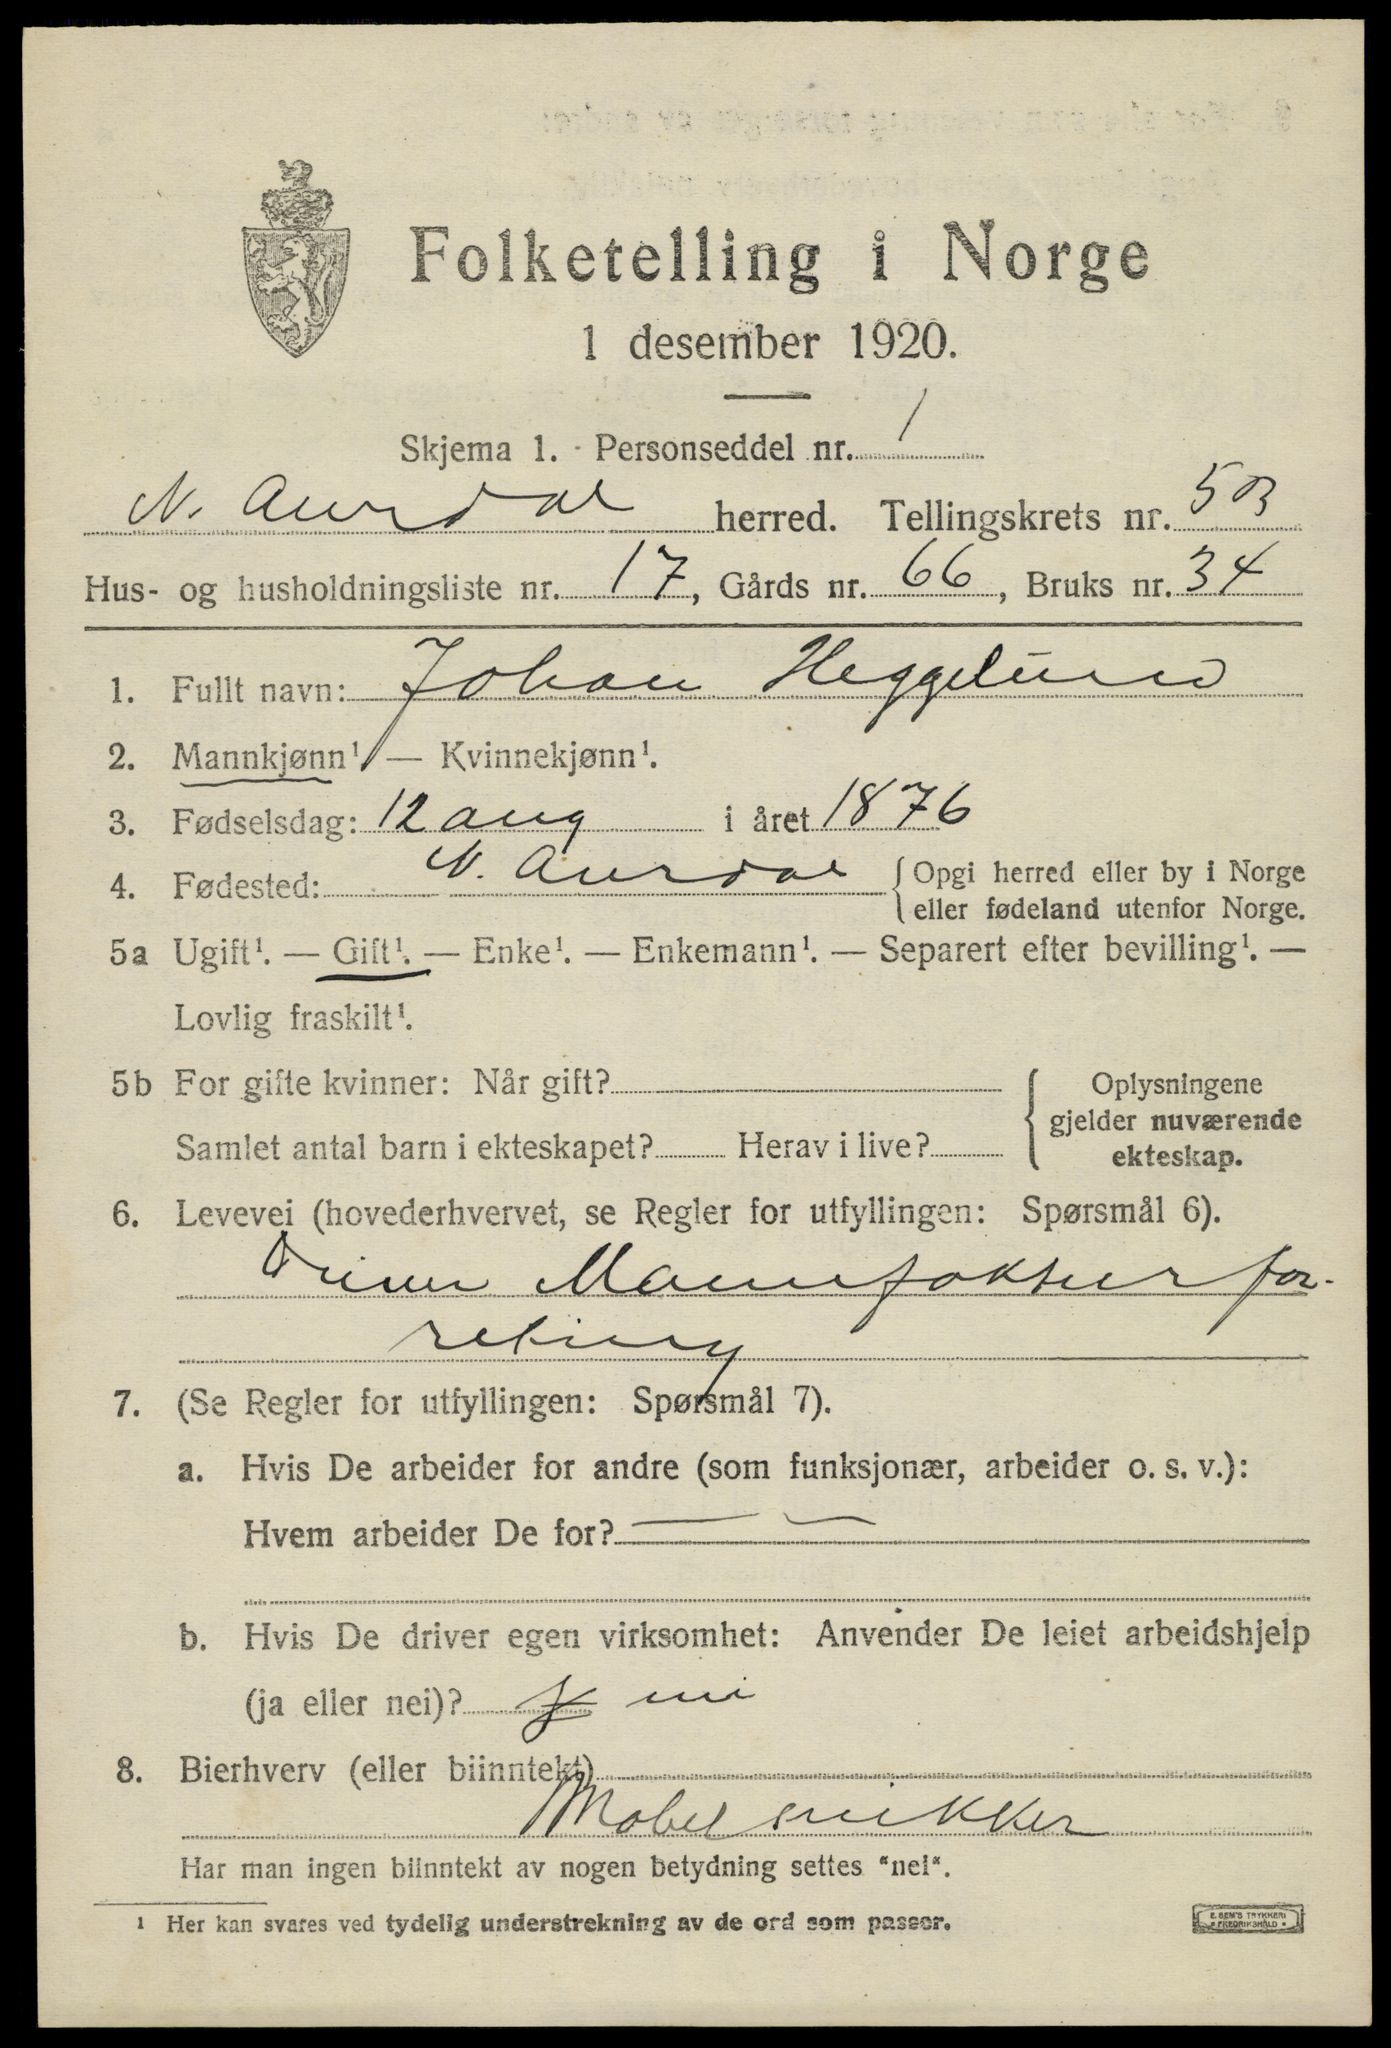 Folketelling i Norge
1 desember 1920.
Skjema 1. - Personseddel nr. 1
N. Aurdal herred. Tellingskrets nr. 5 B
Hus- og husholdningsliste nr. 17, Gårds nr. 66, Bruks nr. 34
1. Fullt navn: Johan Heggelund
2. Mannkjønn¹ — Kvinnekjønn¹.
3. Fødselsdag: 12 aug i året 1876
4. Fødested: N. Aurdal { Opgi herred eller by i Norge
eller fødeland utenfor Norge.
5a Ugift¹. — Gift¹. — Enke¹. — Enkemann¹. — Separert efter bevilling¹. —
Lovlig fraskilt¹.
5b For gifte kvinner: Når gift?
Samlet antal barn i ekteskapet? Herav i live?
{ Oplysningene
gjelder nuværende
ekteskap.
6. Levevei (hovederhvervet, se Regler for utfyllingen: Spørsmål 6).
Driver Manufaktur for-
retning
7. (Se Regler for utfyllingen: Spørsmål 7).
a. Hvis De arbeider for andre (som funksjonær, arbeider o. s. v.):
Hvem arbeider De for? — —
b. Hvis De driver egen virksomhet: Anvender De leiet arbeidshjelp
(ja eller nei)? nei
8. Bierhverv (eller biinntekt)
Møbelsnikker
Har man ingen biinntekt av nogen betydning settes "nei".
1 Her kan svares ved tydelig understrekning av de ord som passer.
E. SEM'S TRYKKERI
• FREDRIKSHALD •